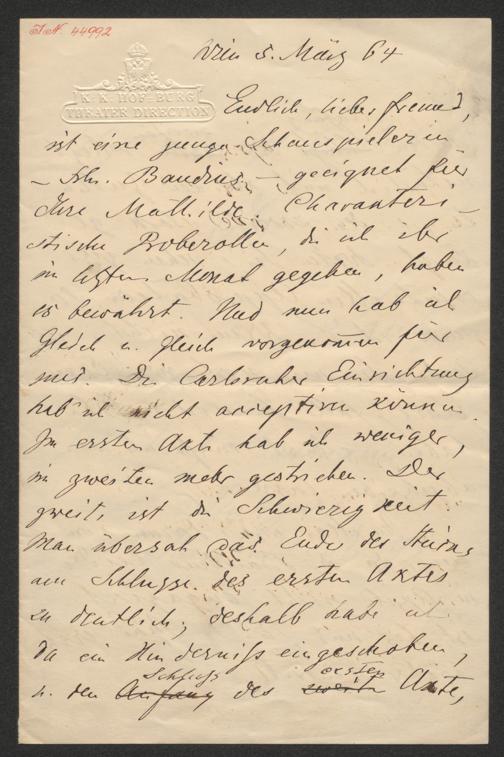 I.N. 44992
Wien 5. März 64
K. K. HOF-BURG
THEATER DIRECTION
Endlich, lieber Freund,
ist eine junge Schauspielerin
– Frln. Baudius – geeignet für
Ihre Mathilde. Charakteri-
stische Proberollen, die ich ihr
im letzten Monat gegeben, haben
es bewährt. Und nun hab ich
gleich u. gleich vorgenommen für
mich. Die Carlsruher Einrichtung
hab ich nicht acceptiren können.
Im ersten Akte hab ich weniger,
im zweiten mehr gestrichen. Der
zweite ist die Schwierigkeit.
Man übersah das Ende des
am Schlusse des ersten Aktes
zu deutlich; deshalb habe ich
da ein Hinderniß eingeschoben,
Schluß ersten
u. den Anfang des zweiten Akte,